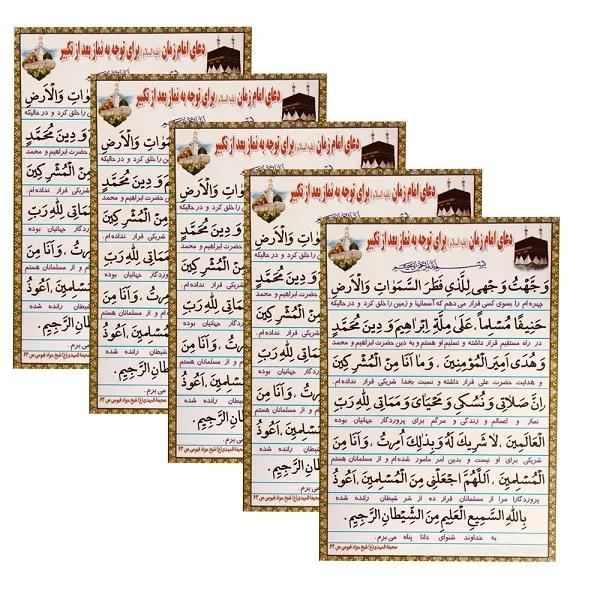 دعای امام زمان (علیه السلام) برای توجه به نماز بعد از تکبیر
بِسْمِ اللهِ الرَّحْمنِ الرَّحيمِ
وَجَّهْتُ وَجْهِیَ لِلَّذی فَطَرَ السَّمَوَاتِ وَالْاَرْضِ
چهره ام را بسوی کسی قرار می دهم که آسمانها و زمین را خلق کرد و در حالیکه
حَنِیفًا مُسْلِماً، عَلیٰ مِلَّةِ اِبْراهِیمَ وَ دِینِ مُحَمَّدٍ
در راه مستقیم قرار داشته و تسلیم او هستم و به دین حضرت ابراهیم و محمد
وَ هُدَی اَمِیرِ الْمُؤْمِنِینَ، وَ ما اَنَا مِنَ الْمُشْرِکِینَ
و هدایت حضرت علی قرار داشته و نسبت بخدا شریکی قرار نداده ام.
اِنَّ صَلاتِی وَ نُسُکِی وَ مَحْیَایَ وَ مَمَاتِی لِلّٰهِ رَبِّ
نماز و اعمالم و زندگی و مرگم برای پروردگار جهانیان بوده
الْعالَمِینَ، لا شَرِیکَ لَهُ وَ بِذٰلِکَ اُمِرْتُ، وَ اَنَا مِنَ
شریکی برای او نیست و بدین امر مامور شده ام و از مسلمانان هستم
الْمُسْلِمِینَ، اَللّٰهُمَّ اجْعَلْنِی مِنَ الْمُسْلِمِینَ، اَعُوذُ
پروردگارا مرا از مسلمانان قرار ده از شر شیطان رانده شده
بِاللهِ السَّمِیعِ الْعَلِیمِ مِنَ الشَّیْطانِ الرَّجِیمِ.
به خداوند شنوای دانا پناه می برم.
صحیفة المهدی(ع) شیخ جواد قیومی ص ۶۲